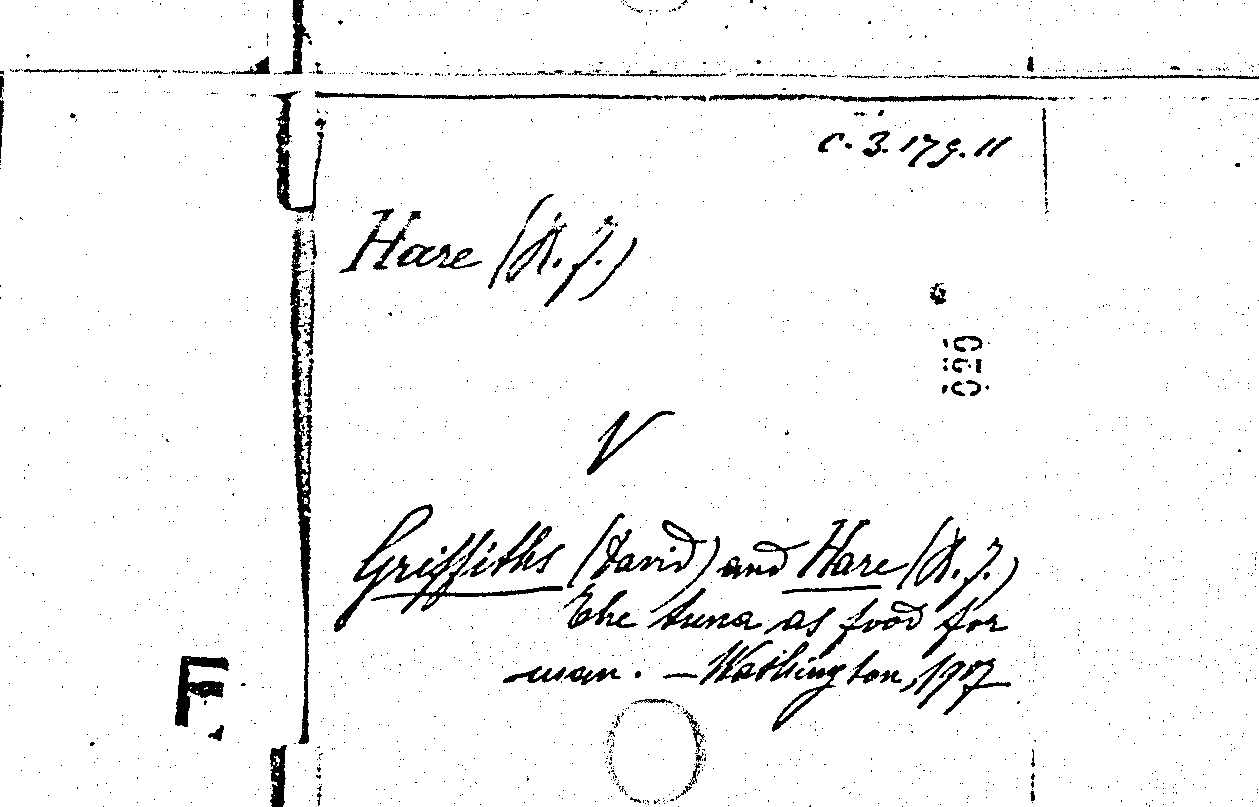 C. 3. 179. 11
Hare (R. F.)
020
V
Griffiths (David) and Hare (R. F.)
The tuna as food for
man. — Washington, 1907
F